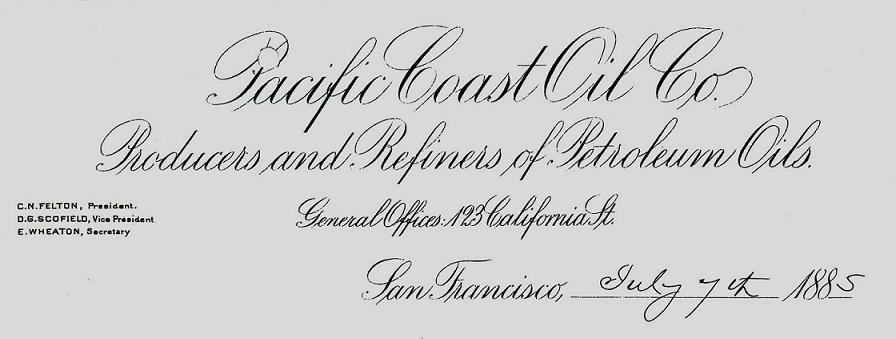 Pacific Coast Oil Co.
Producers and Refiners of Petroleum Oils.
C.N. FELTON, President.
D.G. SCOFIELD, Vice President
E. WHEATON, Secretary
General Offices: 123 California St.
San Francisco, July 7th 1885